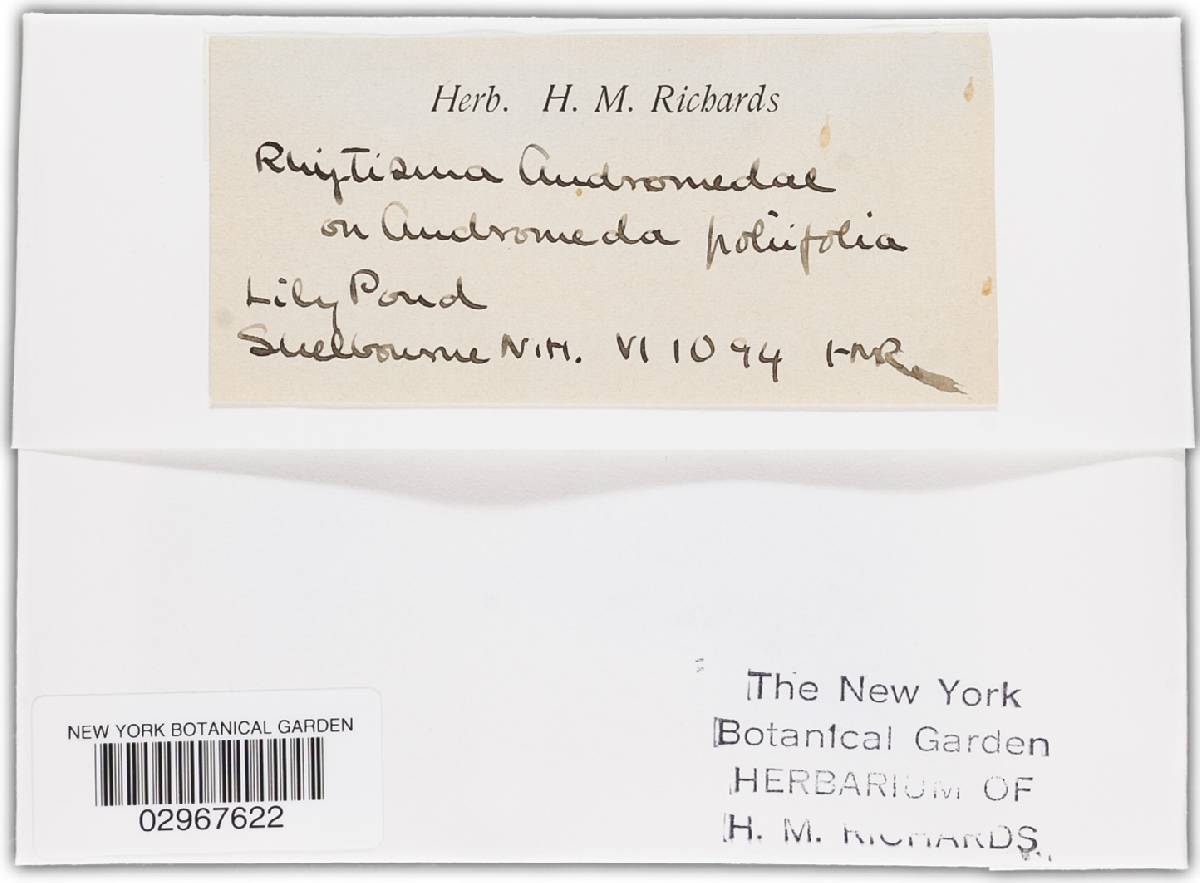 Herb. H. M. Richards
Rhytisma Andromedae
on Andromeda poliifolia
Lily Pond
Shelbourne N.H. VI 10 94 HMR
The New York
Botanical Garden
HERBARIUM OF
H. M. RICHARDS
NEW YORK BOTANICAL GARDEN
02967622